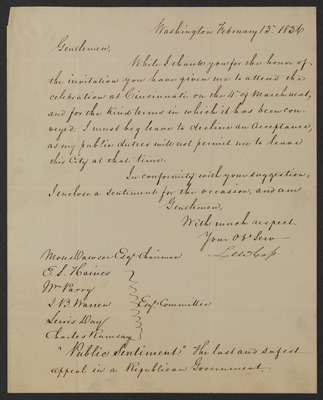 Washington February 13th 1836
Gentlemen,
While I thank you for the honor of
the invitation you have given me to attend the
celebration at Cincinnati on the 4th of March next,
and for the kind terms in which it has been con-
veyed, I must beg leave to decline an acceptance,
as my public duties will not permit me to leave
this City at that time.
In conformity with your suggestion,
I enclose a sentiment for the occasion, and am
Gentlemen,
With much respect
Your Obt Serv
Lew Cass
Moses Dawson Esqr Chairman
E. S. Haines
Wm Parry
J. B. Warren Esqrs Committee
Lewis Day
Charles Ramsay
"Public Sentiment," The last and safest
appeal in a Republican Government.